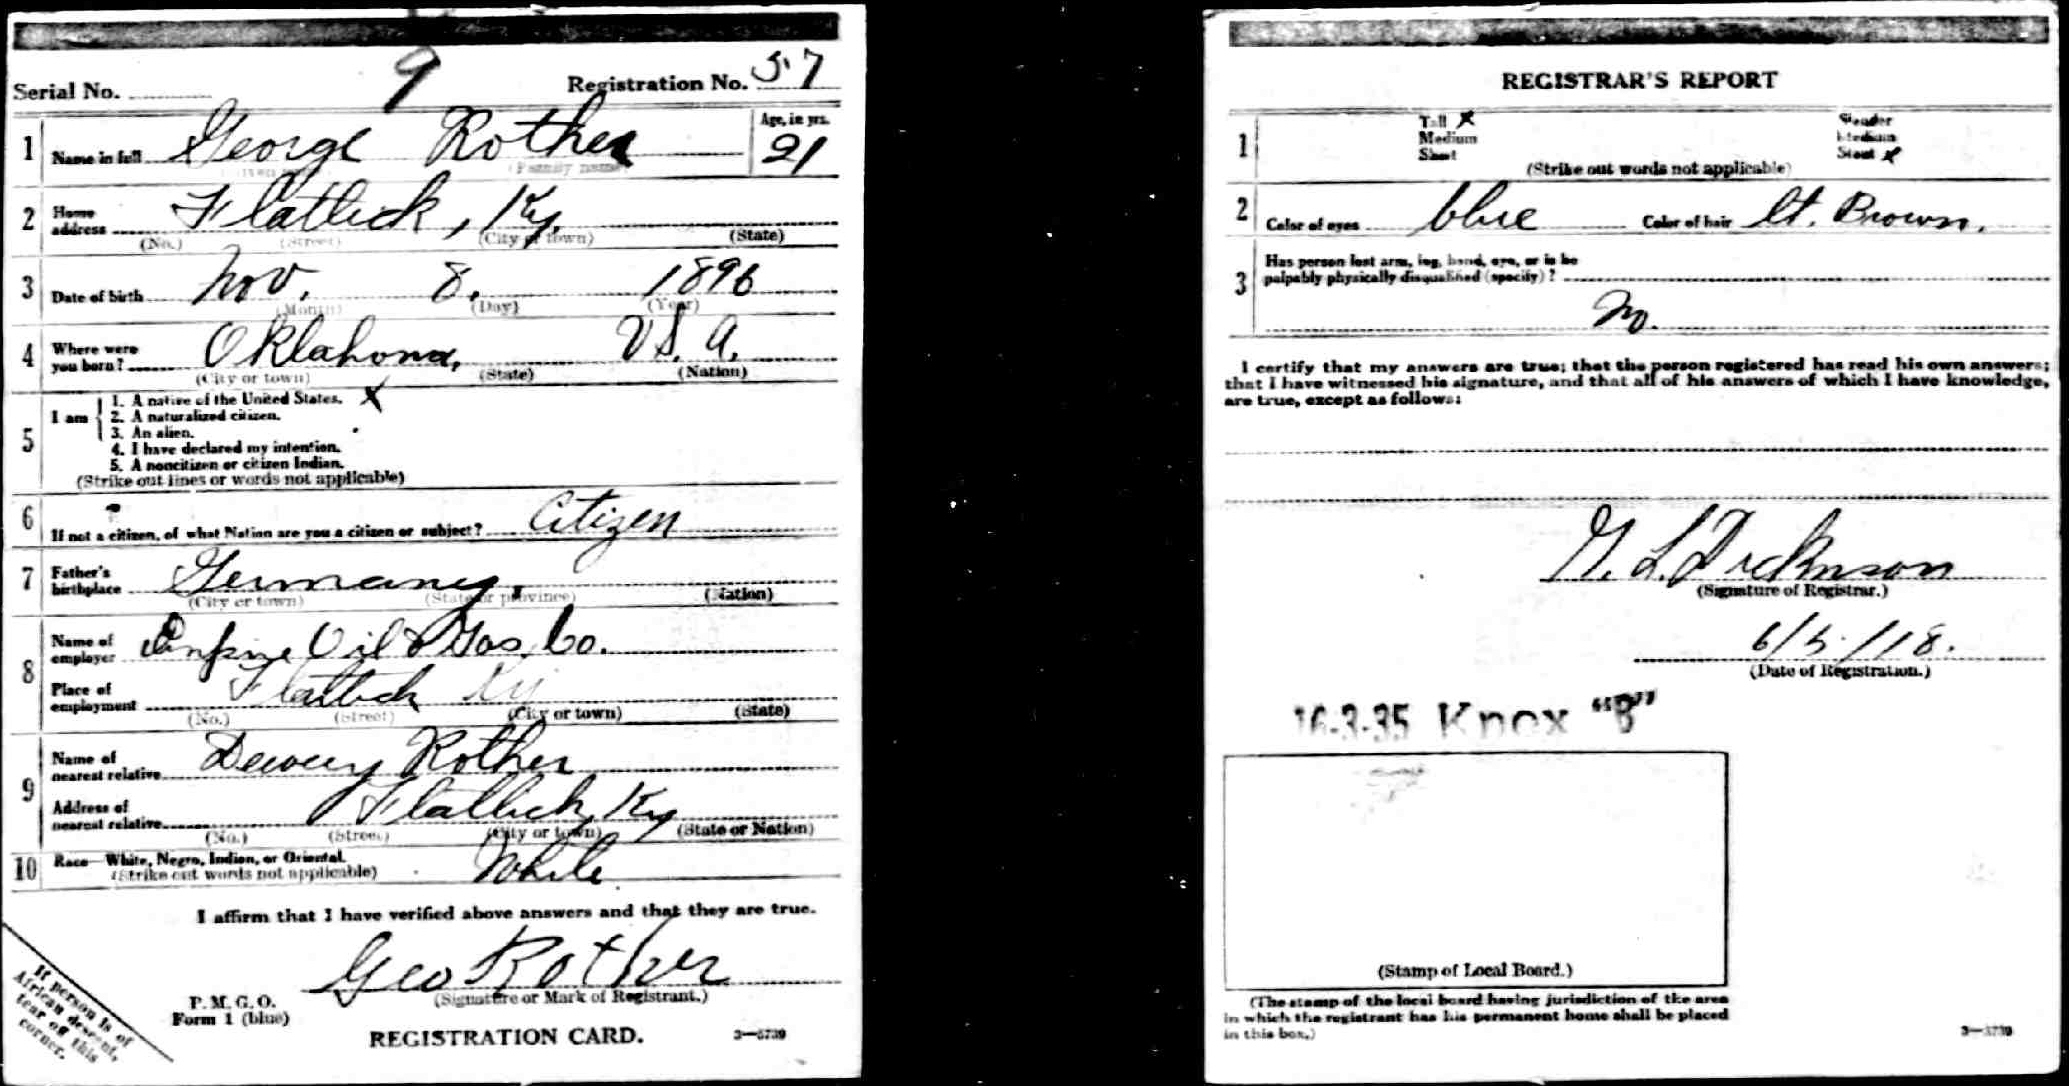 Serial No. 9 Registration No. 57
1 Name in full George Rother Age, in yrs. 21
(Given name) (Family name)
2 Home address Flatlick, Ky.
(No.) (Street) (City or town) (State)
3 Date of birth Nov. 8. 1896
(Month) (Day) (Year)
4 Where were you born? Oklahoma, U.S.A.
(City or town) (State) (Nation)
5 I am 1. A native of the United States. X
2. A naturalized citizen.
3. An alien.
4. I have declared my intention.
5. A noncitizen or citizen Indian.
(Strike out lines or words not applicable)
6 If not a citizen, of what Nation are you a citizen or subject? Citizen
7 Father's birthplace Germany,
(City or town) (State or province) (Nation)
8 Name of employer Oil & Gas Co.
Place of employment Flatlick Ky
(No.) (Street) (City or town) (State)
9 Name of nearest relative Dewey Rother
Address of nearest relative Flatlick, Ky
(No.) (Street) (City or town) (State or Nation)
10 Race—White, Negro, Indian, or Oriental. White
(Strike out words not applicable)
I affirm that I have verified above answers and that they are true.
Geo Rother
(Signature or Mark of Registrant.)
P. M. G. O.
Form 1 (blue)
REGISTRATION CARD. 3—5739
If person is of
African descent,
tear off this
corner.
REGISTRAR'S REPORT
1 Tall X Slender
Medium Medium
Short Stout X
(Strike out words not applicable)
2 Color of eyes blue Color of hair lt. Brown.
3 Has person lost arm, leg, hand, eye, or is he
palpably physically disqualified (specify)?
No.
I certify that my answers are true; that the person registered has read his own answers;
that I have witnessed his signature, and that all of his answers of which I have knowledge,
are true, except as follows:
L. Dickinson
(Signature of Registrar.)
6/5/18.
(Date of Registration.)
16-3-35 Knox "B"
(Stamp of Local Board.)
(The stamp of the local board having jurisdiction of the area
in which the registrant has his permanent home shall be placed
in this box.)
3—5739